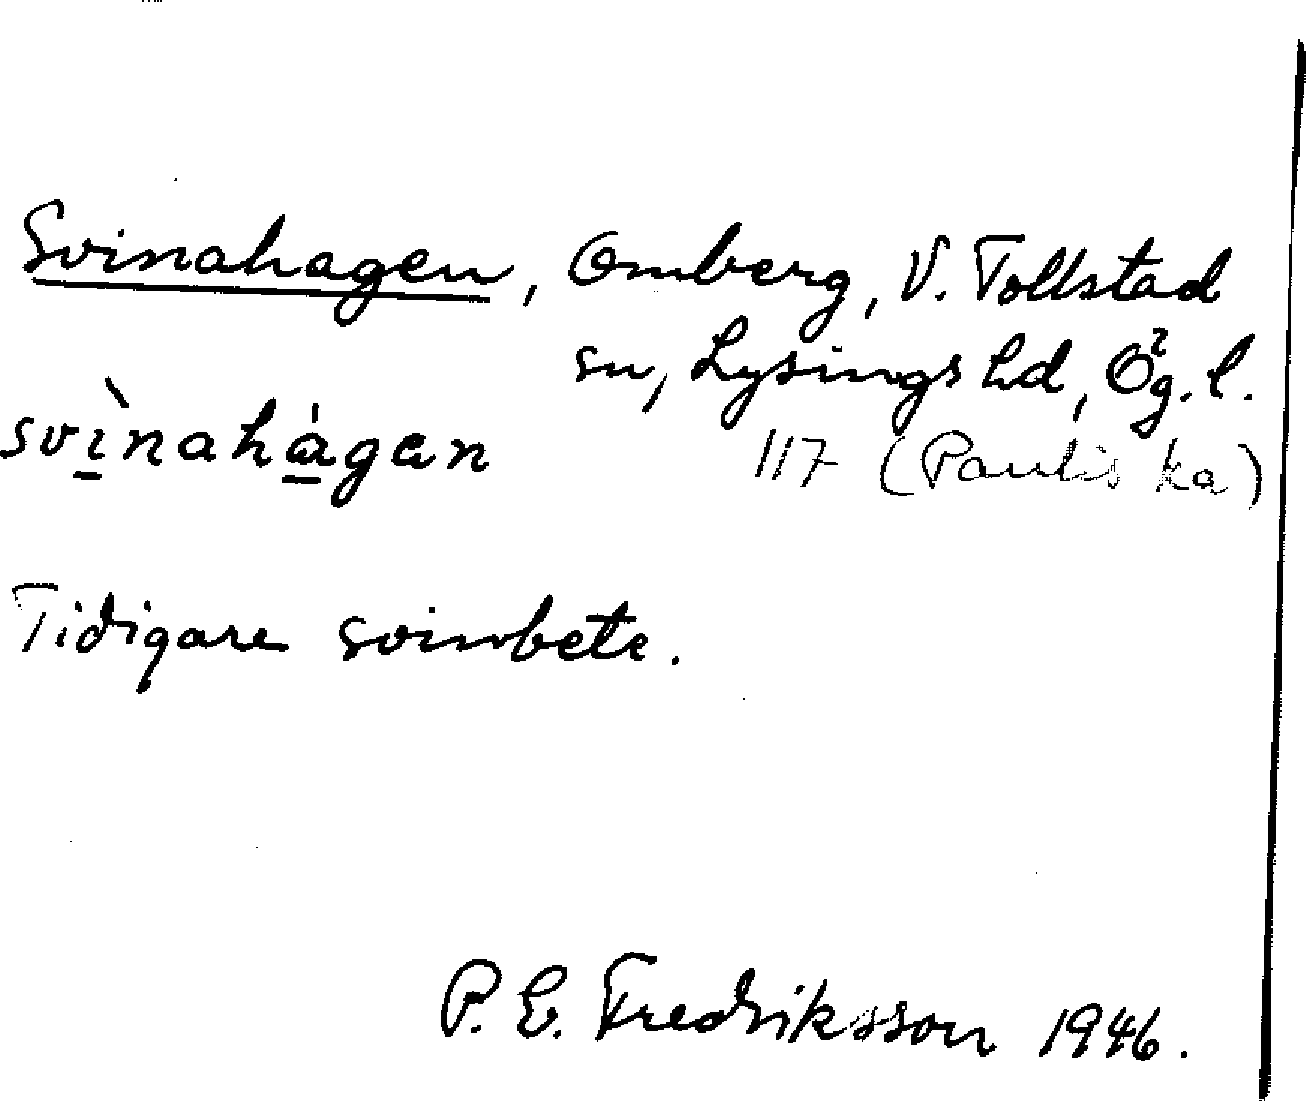 Svinahagen, Omberg, V. Tollstad
sn, Lysings hd, Ög. l.
svìnahágen
117 (Paulis ka)
Tidigare svinbete.
P. E. Fredriksson 1946.